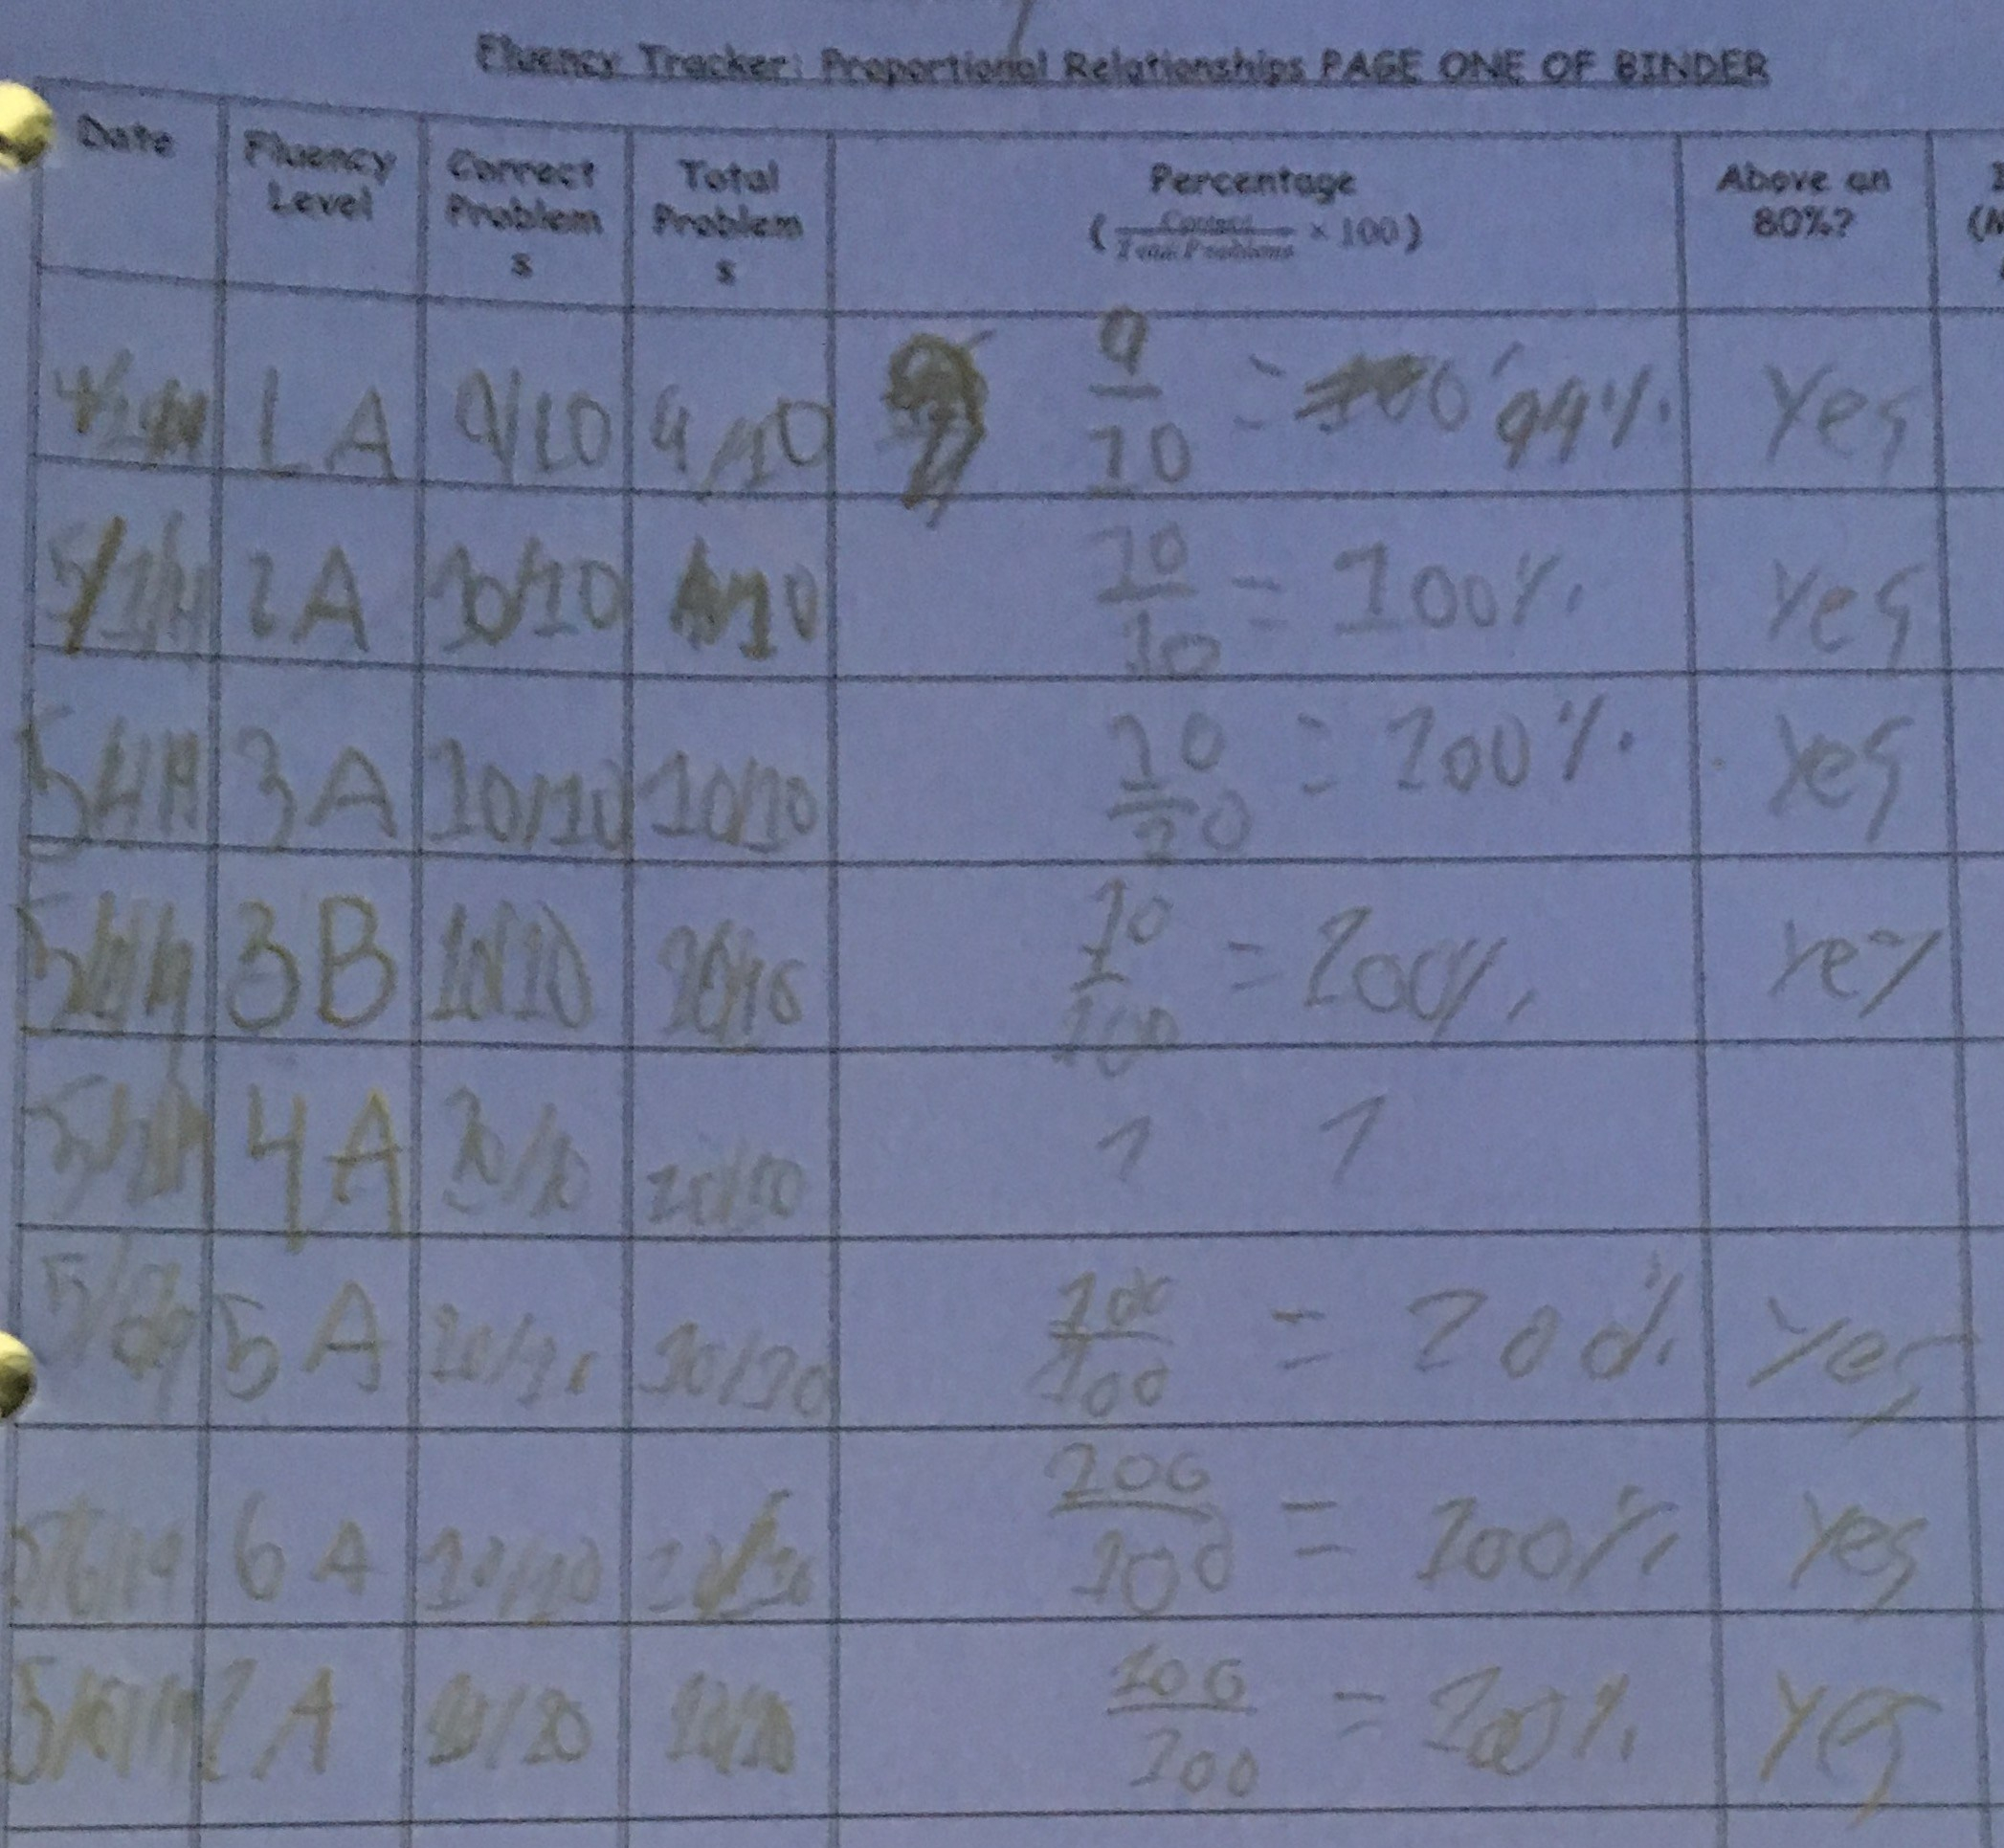 Fluency Tracker: Proportional Relationships PAGE ONE OF BINDER
Date Fluency Level Correct Problems Total Problems Percentage Above an 80%?
( Correct / Total Problems × 100)
1A 9/10 9/10 9/10 = 99% Yes
2A 10/10 10 10/10 = 100% Yes
3A 10/10 10/10 10/10 = 100% Yes
3B 10/10 10/10 10/100 = 100% Yes
4A 10/10 10/10 1 1
5A 10/10 10/10 100/100 = 100% Yes
5/6/19 6A 10/10 10/10 100/100 = 100% Yes
7A 10/10 10/10 100/100 = 100% Yes